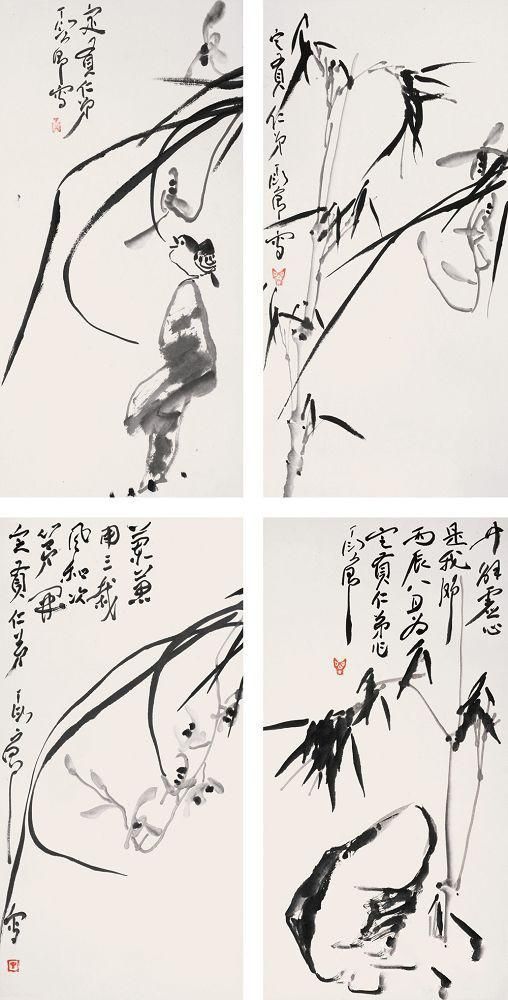 定貢仁弟
丁衍庸寫
定貢仁弟 丁衍庸寫
風和次
第開
定貢仁弟 丁衍庸 寫
竹解虛心
是我師
丙辰八月為
定貢仁弟作
丁衍庸